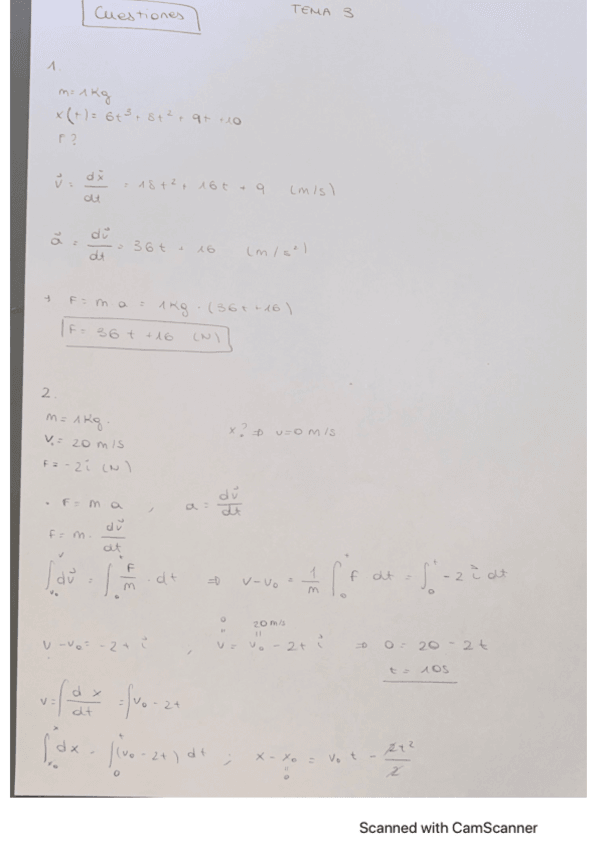 Cuestiones TEMA 3
1.
m = 1 Kg
x(t) = 6t³ + 8t² + 9t + 10
F?
v⃗ = dx⃗/dt = 18t² + 16t + 9 (m/s)
a⃗ = dv⃗/dt = 36t + 16 (m/s²)
F = m a = 1Kg · (36t + 16)
F = 36t + 16 (N)
2.
m = 1Kg.
x? ⇒ v=0 m/s
V₀ = 20 m/s
F = -2i⃗ (N)
· F = m a , a = dv⃗/dt
F = m · dv⃗/dt
∫ᵥ₀ᵛ dv⃗ = ∫₀ᵗ F/m · dt ⇒ v - v₀ = 1/m ∫₀ᵗ F dt = ∫₀ᵗ -2 i⃗ dt
0 20m/s
v - v₀ = -2t i⃗ , v = v₀ - 2t i⃗ ⇒ 0 = 20 - 2t
t = 10s
v = ∫ dx/dt = ∫ v₀ - 2t
∫ₓ₀ˣ dx = ∫₀ᵗ (v₀ - 2t) dt ; x - x₀ = v₀ t - 2t²/2
0
Scanned with CamScanner